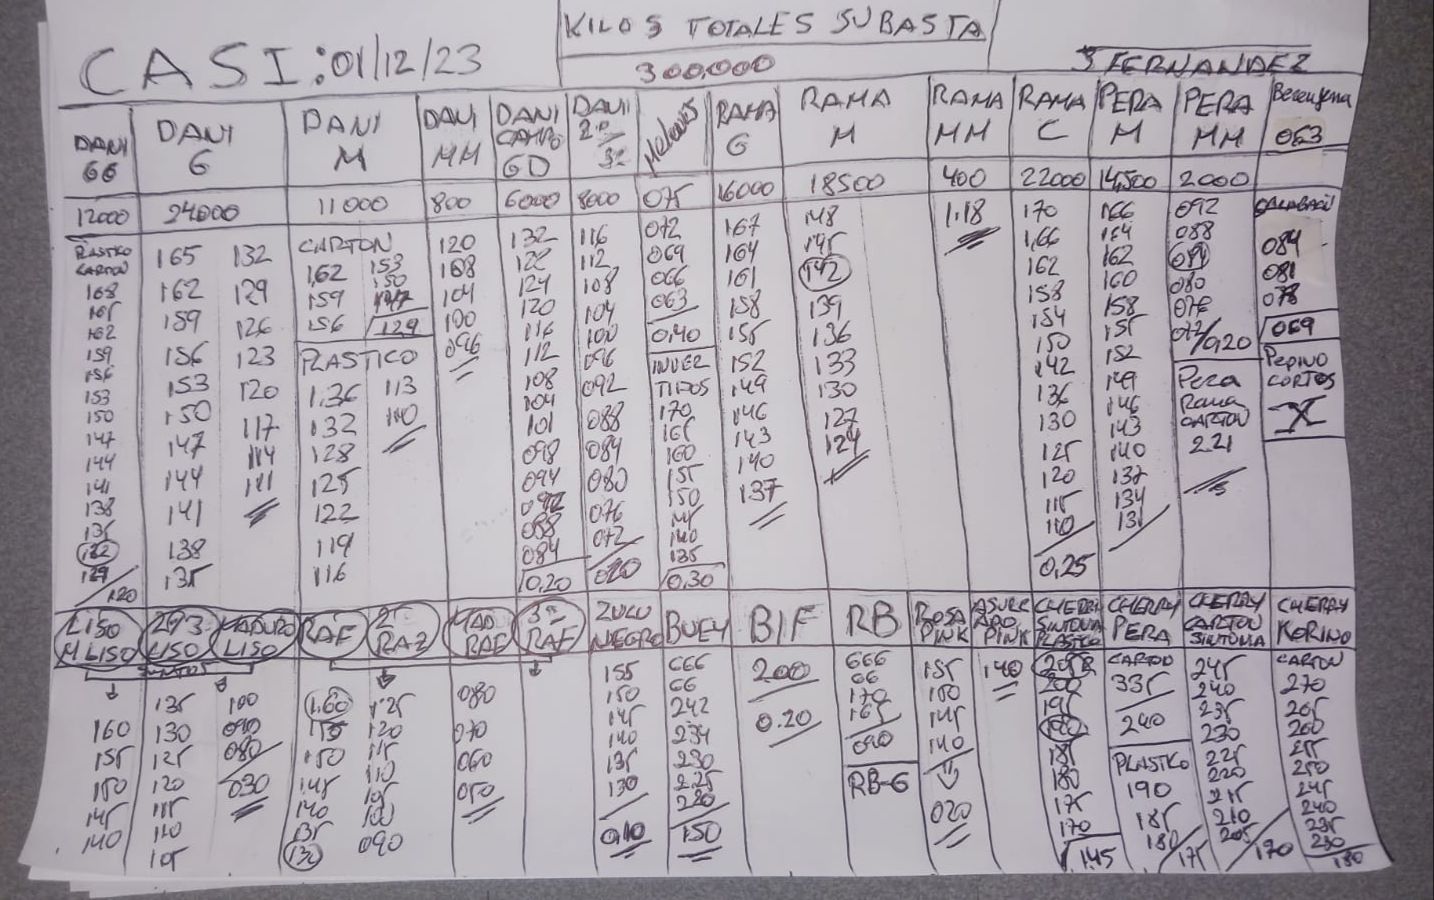 CASI: 01/12/23
KILOS TOTALES SUBASTA
300,000
J FERNANDEZ
DANI GG
12000
PLASTICO
CARTON
168
165
162
159
156
153
150
147
144
141
138
135
132
129
120
DANI G
24000
165 132
162 129
159 126
156 123
153 120
150 117
147 114
144 111
141
138
135
DANI M
11000
CARTON
162 153
159 150
156 129
PLASTICO
1,36 113
132 110
128
125
122
119
116
DANI MM
800
120
108
104
100
096
DANI CAMPO GD
6000
132
124
120
116
112
108
104
101
098
094
088
084
0,20
DANII
8000
116
112
108
104
100
096
092
088
084
080
076
072
020
075
072
069
066
063
0,40
INVER
TIDOS
170
165
160
155
150
145
140
135
0,30
RAMA G
16000
167
164
161
158
155
152
149
146
143
140
137
RAMA M
18500
148
145
142
139
136
133
130
127
124
RAMA MM
400
1.18
RAMA C
22000
170
1,66
162
158
154
150
142
136
130
125
120
115
110
0,25
PERA M
14,500
166
164
162
160
158
155
152
149
146
143
140
137
134
131
PERA MM
2000
092
088
084
080
076
072/0,20
Pera
Rama
CARTON
2.21
Berenjena
063
CALABACIN
084
081
078
069
PEPINO
CORTOS
X
LISO
M LISO
160
155
150
145
140
LISO
135
130
125
120
115
110
105
MADURO
LISO
100
090
080
030
RAF
1.60
155
150
145
140
135
130
2ª
RAF
125
120
115
110
105
100
090
MAD
RAF
080
070
060
050
3ª
RAF
ZULU
NEGRO
155
150
145
140
135
130
0,10
BUEY
666
66
242
234
230
225
220
150
BIF
200
0.20
RB
666
66
170
165
090
RB-G
ROSA
PINK
155
150
145
140
020
ASURC
ADO
PINK
140
CHERRY
SINTOMA
PLASTICO
200
195
190
185
180
175
170
145
CHERRY
PERA
CARTON
335
240
PLASTICO
190
185
180
175
CHERRY
CARTON
SINTOMA
245
240
235
230
225
220
215
210
205
170
CHERRY
KORINO
CARTON
270
265
260
255
250
245
240
235
230
180